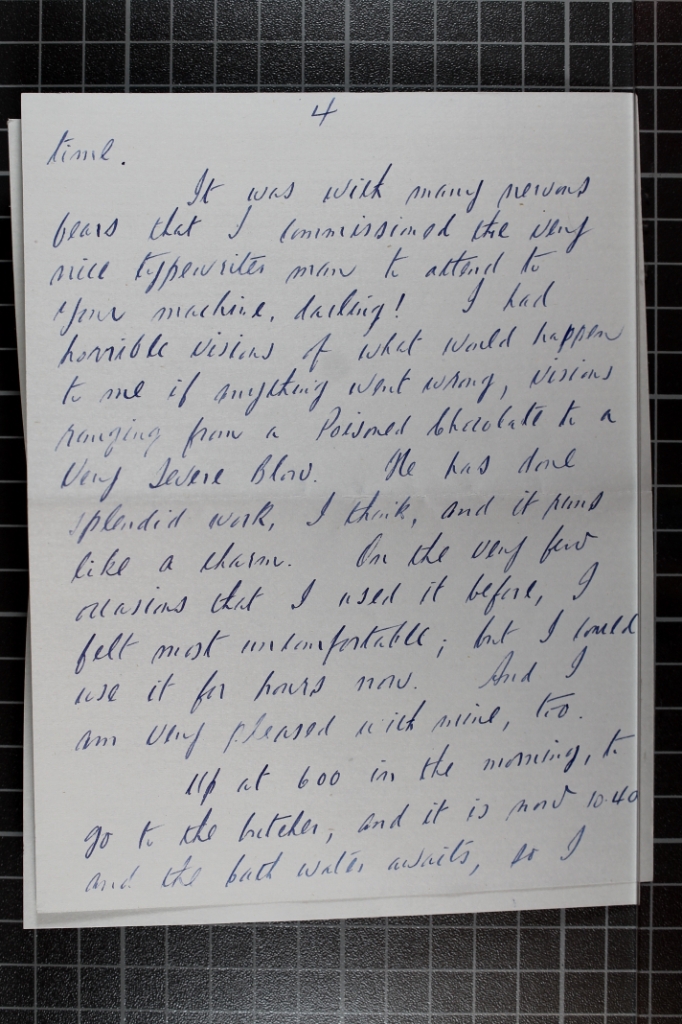 4
time.
It was with many nervous
fears that I commissioned the very
nice typewriter man to attend to
your machine, darling! I had
horrible visions of what would happen
to me if anything went wrong, visions
ranging from a Poisoned Chocolate to a
Very Severe Blow. He has done
splendid work, I think, and it runs
like a charm. On the very few
occasions that I used it before, I
felt most uncomfortable; but I could
use it for hours now. And I
am very pleased with mine, too.
Up at 600 in the morning, to
go to the butcher, and it is now 10.40
and the bath water awaits, so I